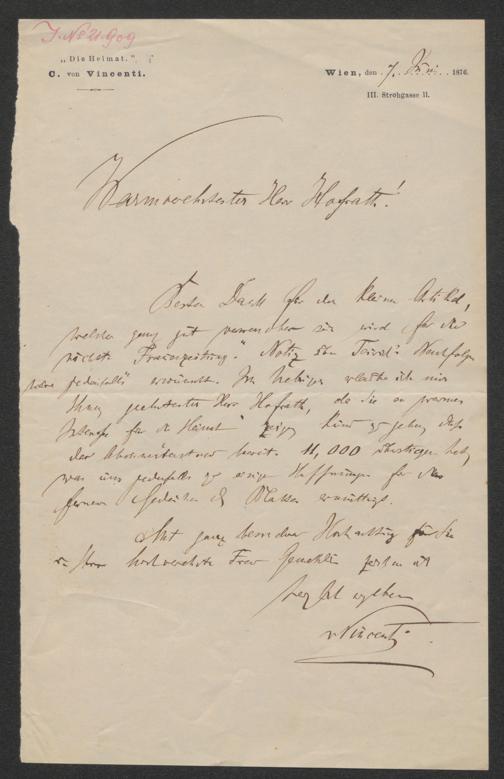 J. No 21.909
„Die Heimat.“
C. von Vincenti.
Wien, den 7. Juni 1876.
III. Strohgasse 11.
Warmverehrtester Herr Hofrath!
Besten Dank für den kleinen Artikel,
welcher ganz gut verwendbar sein wird für die
nächste „Frauenzeitung“. Notiz von
wäre jedenfalls erwünscht. Im Uebrigen erlaube ich mir
Ihnen geehrtester Herr Hofrath, da Sie so warmes
Interesse für die „Heimat“ zeigen kund zu geben, daß
der Abonnentenstand bereits 11,000 überstiegen hat,
was uns jedenfalls zu einigen Hoffnungen für das
fernere Gedeihen des Blattes ermuthigt.
Mit ganz besonderer Hochachtung für Sie
Ihre hochverehrte Frau Gemahlin zeichne ich
herzlichst ergeben
vVincenti